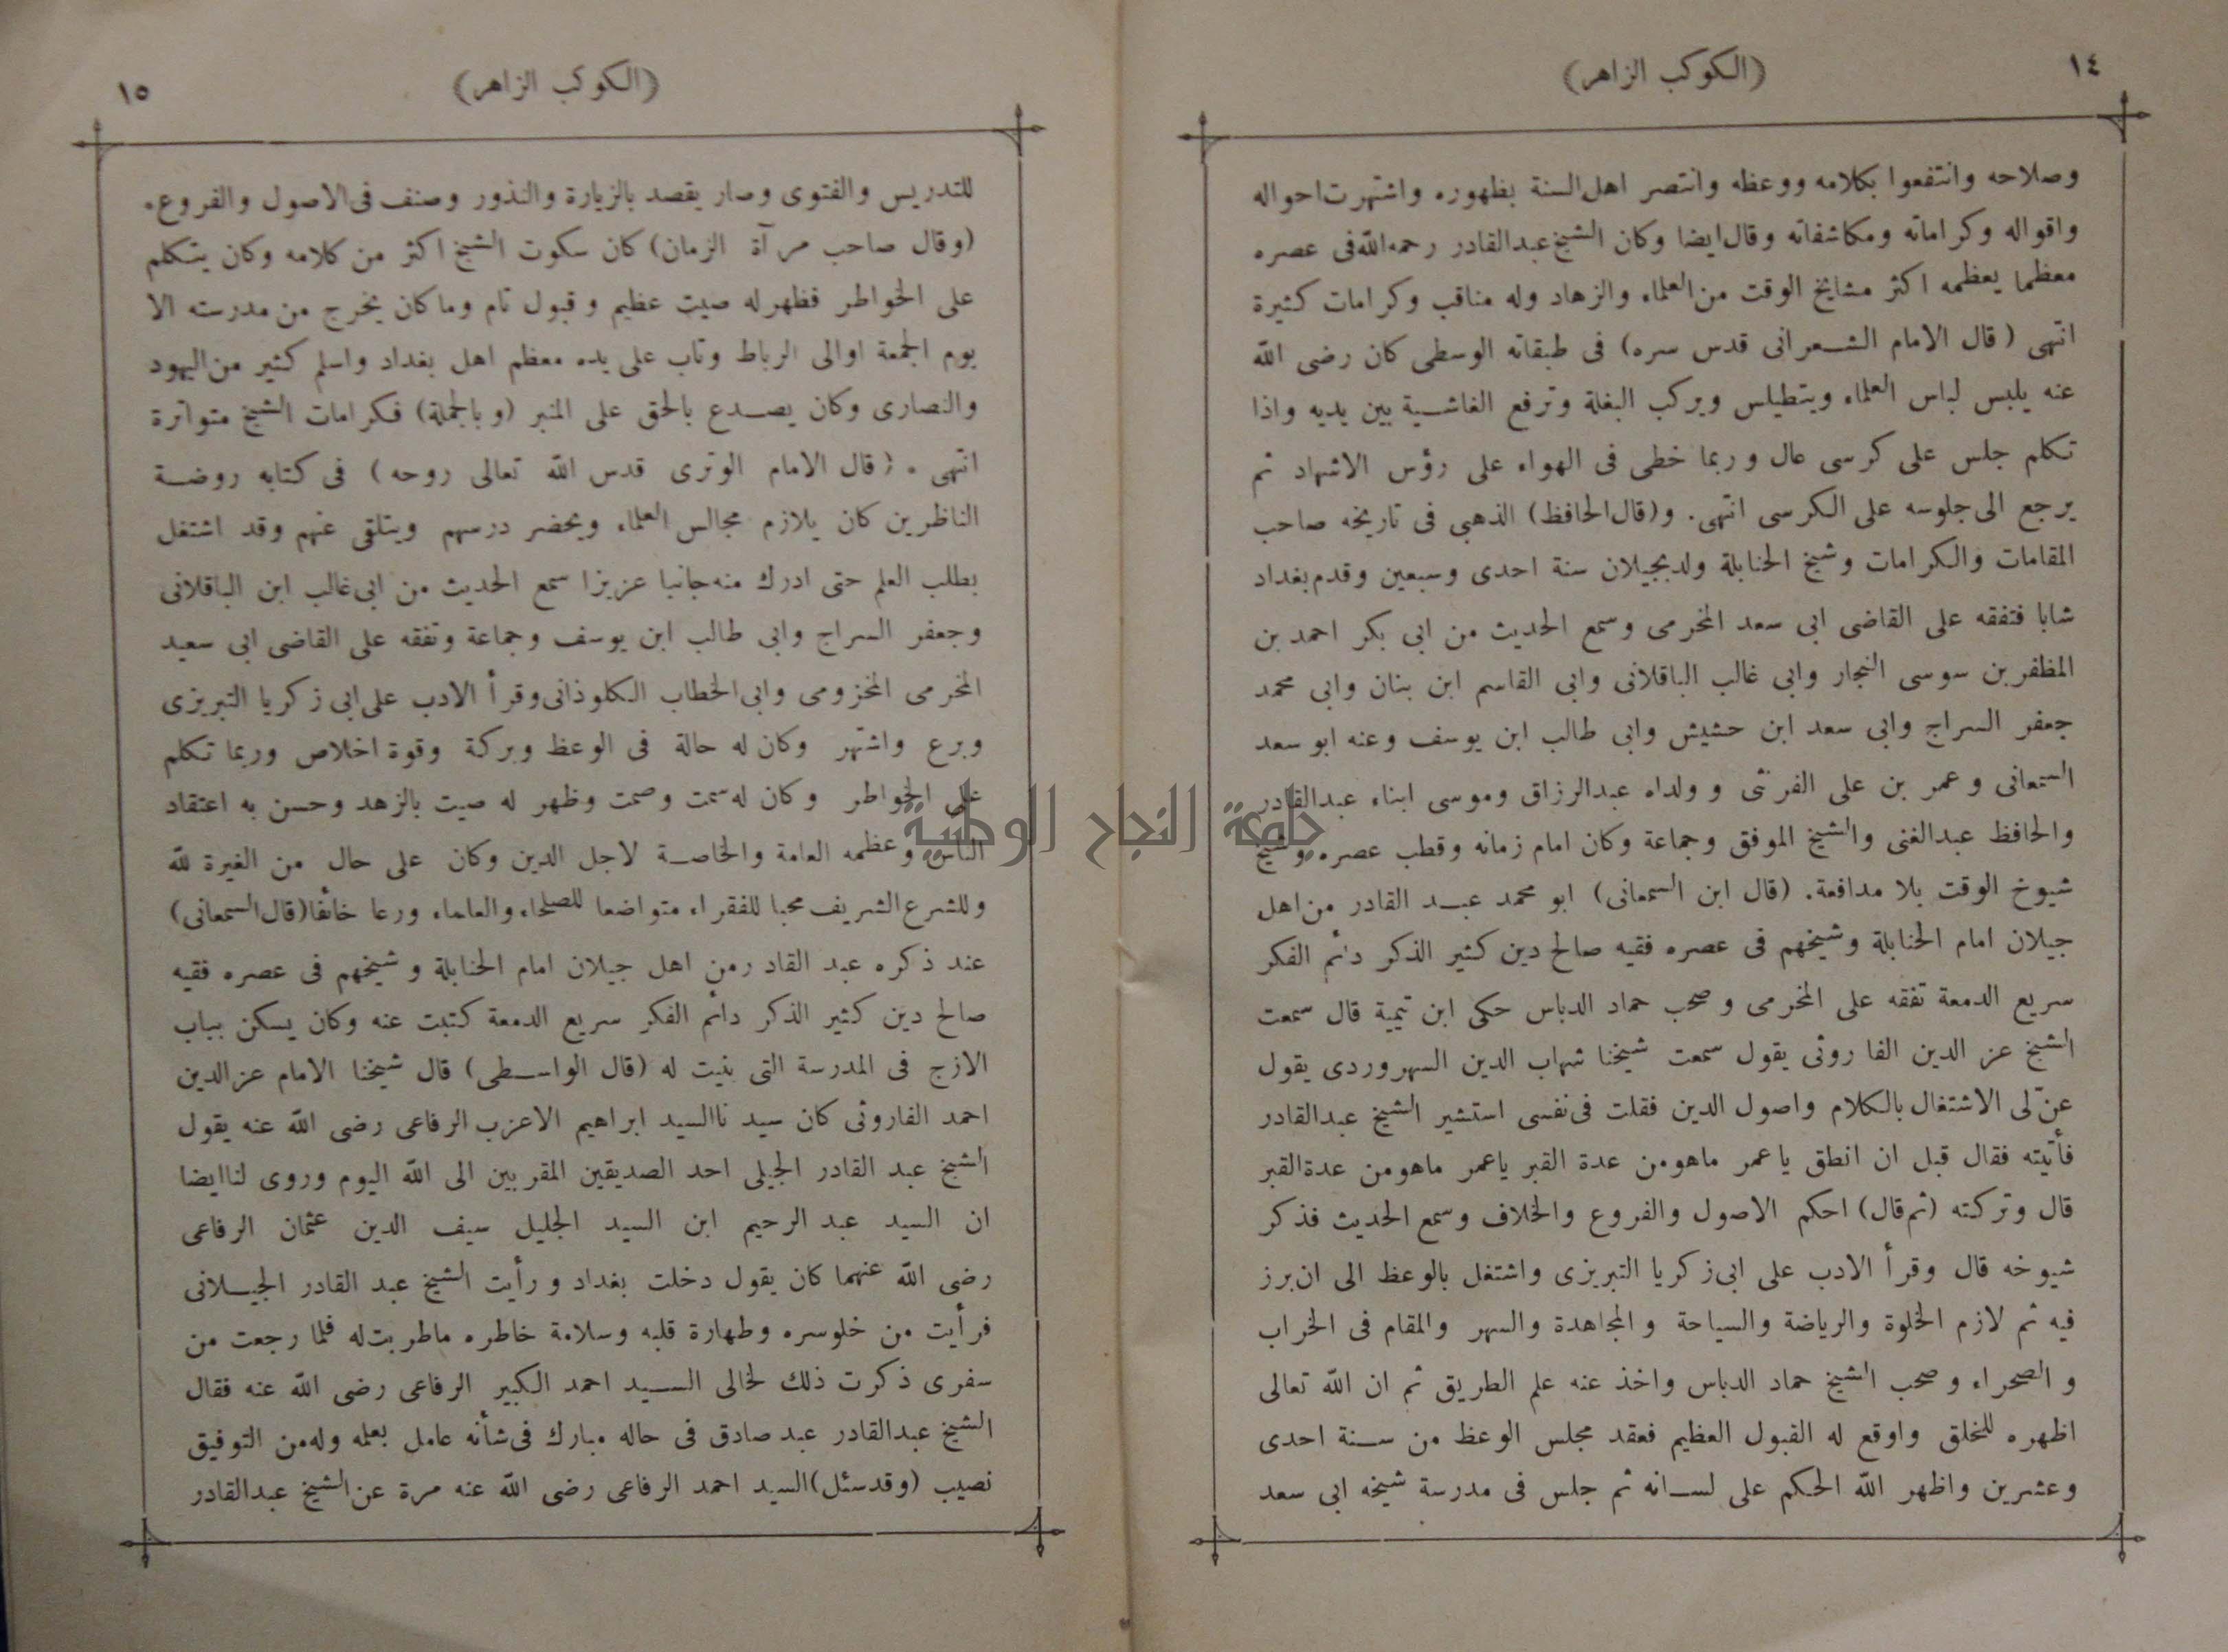 ١٤
(الكوكب الزاهر)
وصلاحه وانتفعوا بكلامه ووعظه وانتصر اهل السنة بظهوره واشتهرت احواله
واقواله وكراماته ومكاشفاته وقال ايضا وكان الشيخ عبدالقادر رحمه الله فى عصره
معظما يعظمه اكثر مشايخ الوقت من العلماء والزهاد وله مناقب وكرامات كثيرة
انتهى ( قال الامام الشعرانى قدس سره) فى طبقاته الوسطى كان رضى الله
عنه يلبس لباس العلماء ويتطيلس ويركب البغلة وترفع الغاشية بين يديه واذا
تكلم جلس على كرسى عال وربما خطى فى الهواء على رؤس الاشهاد ثم
يرجع الى جلوسه على الكرسى انتهى. و(قال الحافظ) الذهبى فى تاريخه صاحب
المقامات والكرامات وشيخ الحنابلة ولد بجيلان سنة احدى وسبعين وقدم بغداد
شابا فتفقه على القاضى ابى سعد المخرمى وسمع الحديث من ابى بكر احمد بن
المظفر بن سوسى النجار وابى غالب الباقلانى وابى القاسم ابن بنان وابى محمد
جعفر السراج وابى سعد ابن حشيش وابى طالب ابن يوسف وعنه ابو سعد
السمعانى وعمر بن على القرشى و ولداه عبدالرزاق وموسى ابناء عبدالقادر
والحافظ عبدالغنى والشيخ الموفق وجماعة وكان امام زمانه وقطب عصره وشيخ
شيوخ الوقت بلا مدافعة. (قال ابن السمعانى) ابو محمد عبد القادر من اهل
جيلان امام الحنابلة وشيخهم فى عصره فقيه صالح دين كثير الذكر دائم الفكر
سريع الدمعة تفقه على المخرمى و صحب حماد الدباس حكى ابن تيمية قال سمعت
الشيخ عز الدين الفا روثى يقول سمعت شيخنا شهاب الدين السهروردى يقول
عنّ لى الاشتغال بالكلام واصول الدين فقلت فى نفسى استشير الشيخ عبدالقادر
فأتيته فقال قبل ان انطق يا عمر ماهو من عدة القبر ياعمر ماهو من عدة القبر
قال وتركته (ثم قال) احكم الاصول والفروع والخلاف وسمع الحديث فذكر
شيوخه قال وقرأ الادب على ابى زكريا التبريزى واشتغل بالوعظ الى ان برز
فيه ثم لازم الخلوة والرياضة والسياحة والمجاهدة والسهر والمقام فى الخراب
و الصحراء و صحب الشيخ حماد الدباس واخذ عنه علم الطريق ثم ان الله تعالى
اظهره للخلق واوقع له القبول العظيم فعقد مجلس الوعظ من سنة احدى
وعشرين واظهر الله الحكم على لسانه ثم جلس فى مدرسة شيخه ابى سعد
١٥
(الكوكب الزاهر)
للتدريس والفتوى وصار يقصد بالزيارة والنذور وصنف فى الاصول والفروع.
(وقال صاحب مرآة الزمان) كان سكوت الشيخ اكثر من كلامه وكان يتكلم
على الخواطر فظهر له صيت عظيم وقبول تام وما كان يخرج من مدرسته الا
يوم الجمعة اوالى الرباط وتاب على يده معظم اهل بغداد واسلم كثير من اليهود
والنصارى وكان يصدع بالحق على المنبر (وبالجملة) فكرامات الشيخ متواترة
انتهى . (قال الامام الوترى قدس الله تعالى روحه ) فى كتابه روضة
الناظرين كان يلازم مجالس العلماء ويحضر درسهم ويتلقى عنهم وقد اشتغل
بطلب العلم حتى ادرك منه جانبا عزيزا سمع الحديث من ابى غالب ابن الباقلانى
وجعفر السراج وابى طالب ابن يوسف وجماعة وتفقه على القاضى ابى سعيد
المخرمى المخزومى وابى الخطاب الكلوذانى وقرأ الادب على ابى زكريا التبريزى
وبرع واشتهر وكان له حالة فى الوعظ وبركة وقوة اخلاص وربما تكلم
على الخواطر وكان له سمت وصمت وظهر له صيت بالزهد وحسن به اعتقاد
الناس وعظمه العامة والخاصة لاجل الدين وكان على حال من الغيرة لله
وللشرع الشريف محبا للفقراء متواضعا للصلحاء والعلماء ورعا خائفا (قال السمعانى)
عند ذكره عبد القاد رمن اهل جيلان امام الحنابلة وشيخهم فى عصره فقيه
صالح دين كثير الذكر دائم الفكر سريع الدمعة كتبت عنه وكان يسكن بباب
الازج فى المدرسة التى بنيت له (قال الواسطى) قال شيخنا الامام عزالدين
احمد الفاروثى كان سيد نا السيد ابراهيم الاعزب الرفاعى رضى الله عنه يقول
الشيخ عبد القادر الجيلى احد الصديقين المقربين الى الله اليوم وروى لنا ايضا
ان السيد عبد الرحيم ابن السيد الجليل سيف الدين عثمان الرفاعى
رضى الله عنهما كان يقول دخلت بغداد ورأيت الشيخ عبد القادر الجيلانى
فرأيت من خلوسره وطهارة قلبه وسلامة خاطره ماطربت له فلما رجعت من
سفرى ذكرت ذلك لخالى السيد احمد الكبير الرفاعى رضى الله عنه فقال
الشيخ عبدالقادر عبد صادق فى حاله مبارك فى شأنه عامل بعلمه وله من التوفيق
نصيب (وقدسئل) السيد احمد الرفاعى رضى الله عنه مرة عن الشيخ عبدالقادر
جامعة النجاح الوطنية